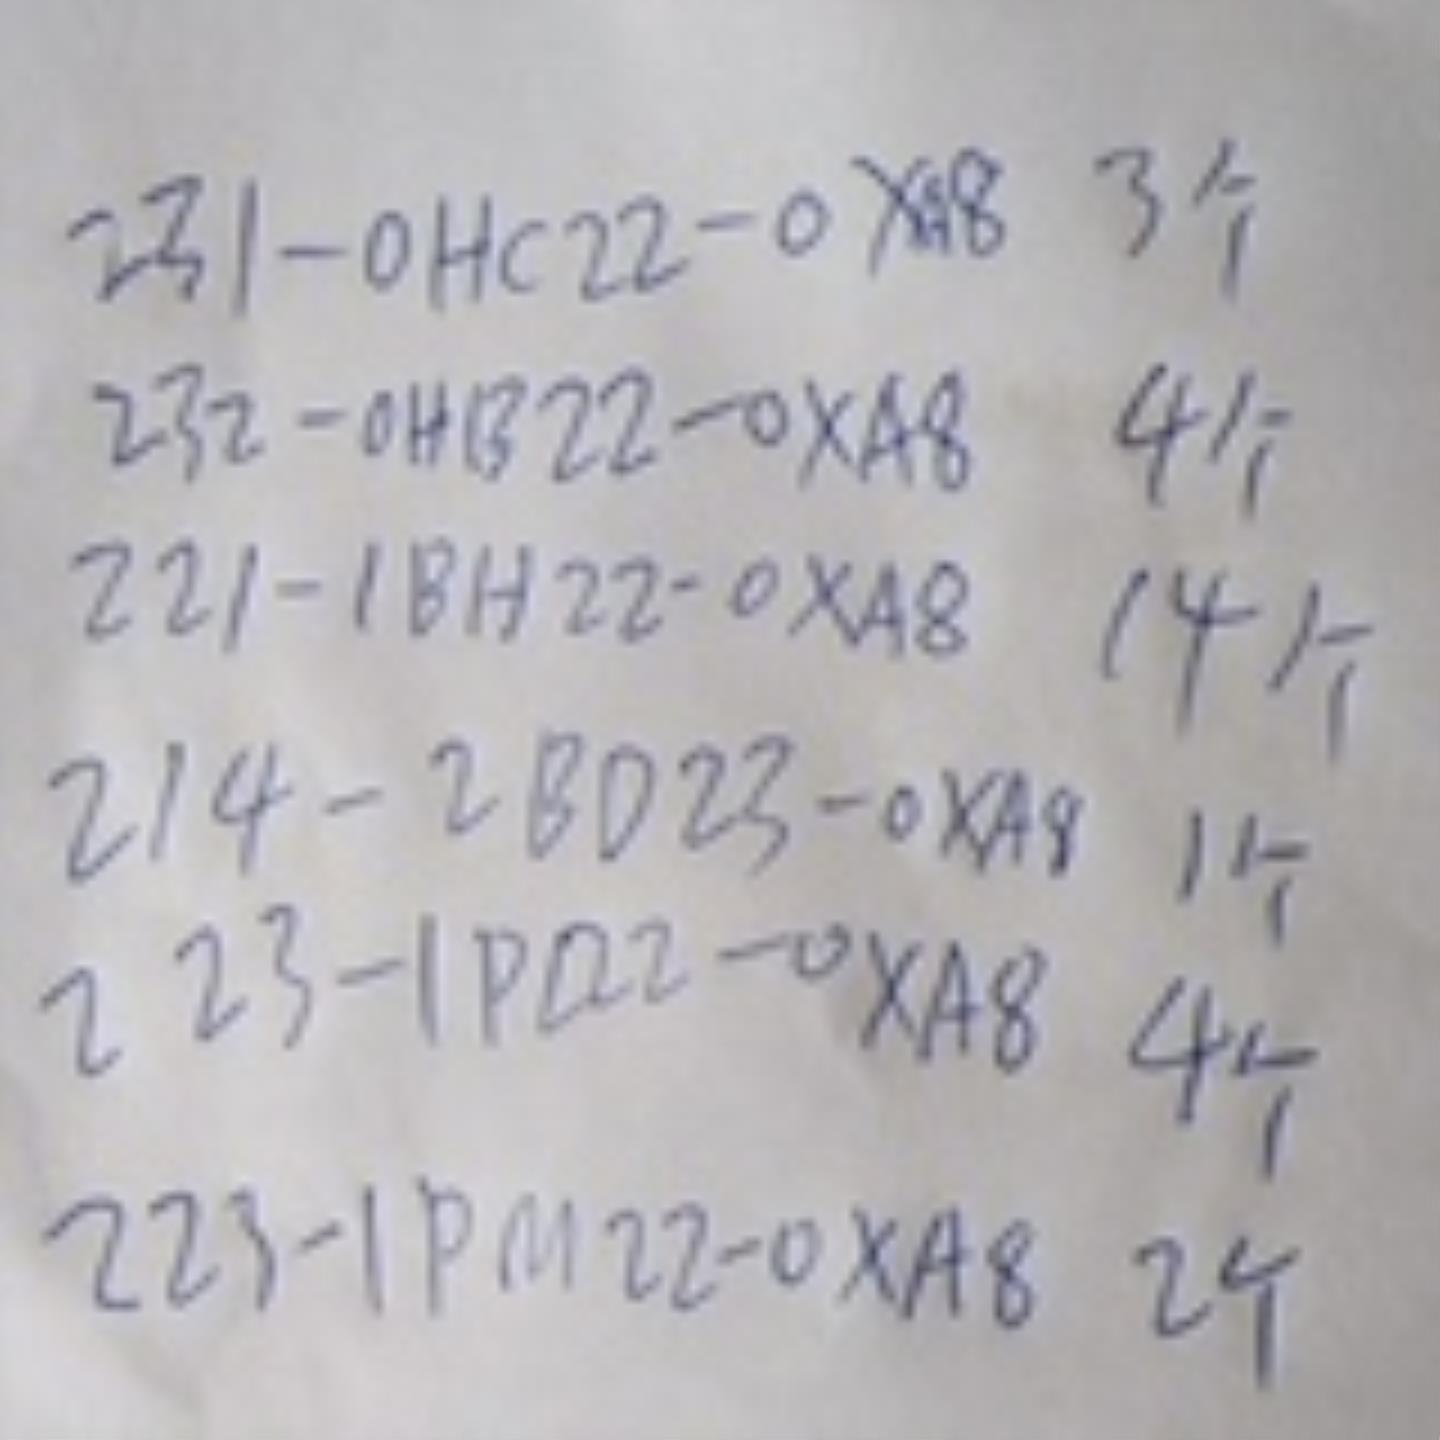 231-0HC22-0XA8 3个
232-0HB22-0XA8 4个
221-1BH22-0XA8 14个
214-2BD23-0XA8 1个
223-1PD22-0XA8 4个
223-1PM22-0XA8 2个